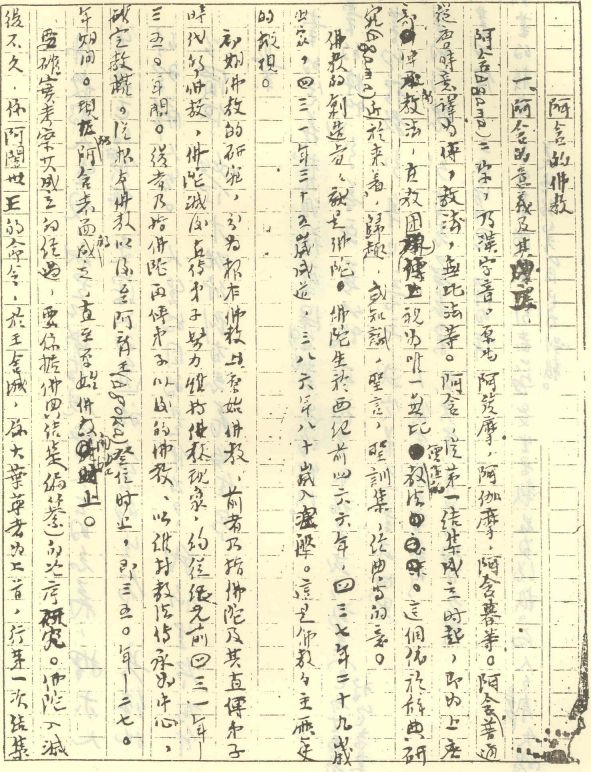 阿含的佛教
一、阿含的意義及其
阿含(Agama)二字，乃漢字音，原為阿笈摩，阿伽摩，阿含暮等。阿含普通
從吾時意譯為傳，教法，無比法等。阿含，從第一結集成立時起，即為上座
部 教法，直被 視為唯一無比 教法 。這個依於辭典研
究(Agama)近於來着，歸趣，或知識，聖言，聖訓集，經典等的意。
佛教的創造者，就是佛陀。佛陀生於西紀前四六六年，四三七年二十九歲
出家，四三一年三十五歲成道，三八六年八十歲入涅槃。這是佛教々主應身
的 。
初期佛教的研究，分為根本佛教與原始佛教，前者乃指佛陀及其直傳弟子
時代的佛教，佛陀滅後直傳弟子努力維持佛教現象，約從紀元前四三一年
三五〇年間。後者乃指佛陀再傳弟子以後的佛教，以維持教法傳承為中心，
確定教權。從根本佛教以後至阿育王(Aśoka)登位時止，即三五〇年—二七〇
年期間。現在的阿含表面成立，直至原始佛教的 時止。
要確實考察其成立的經過，要依據佛四結集(編纂)的次序研究。佛陀入滅
後不久，依阿闍世王的命令，於王舍城，依大葉尊者為上首，行第一次結集